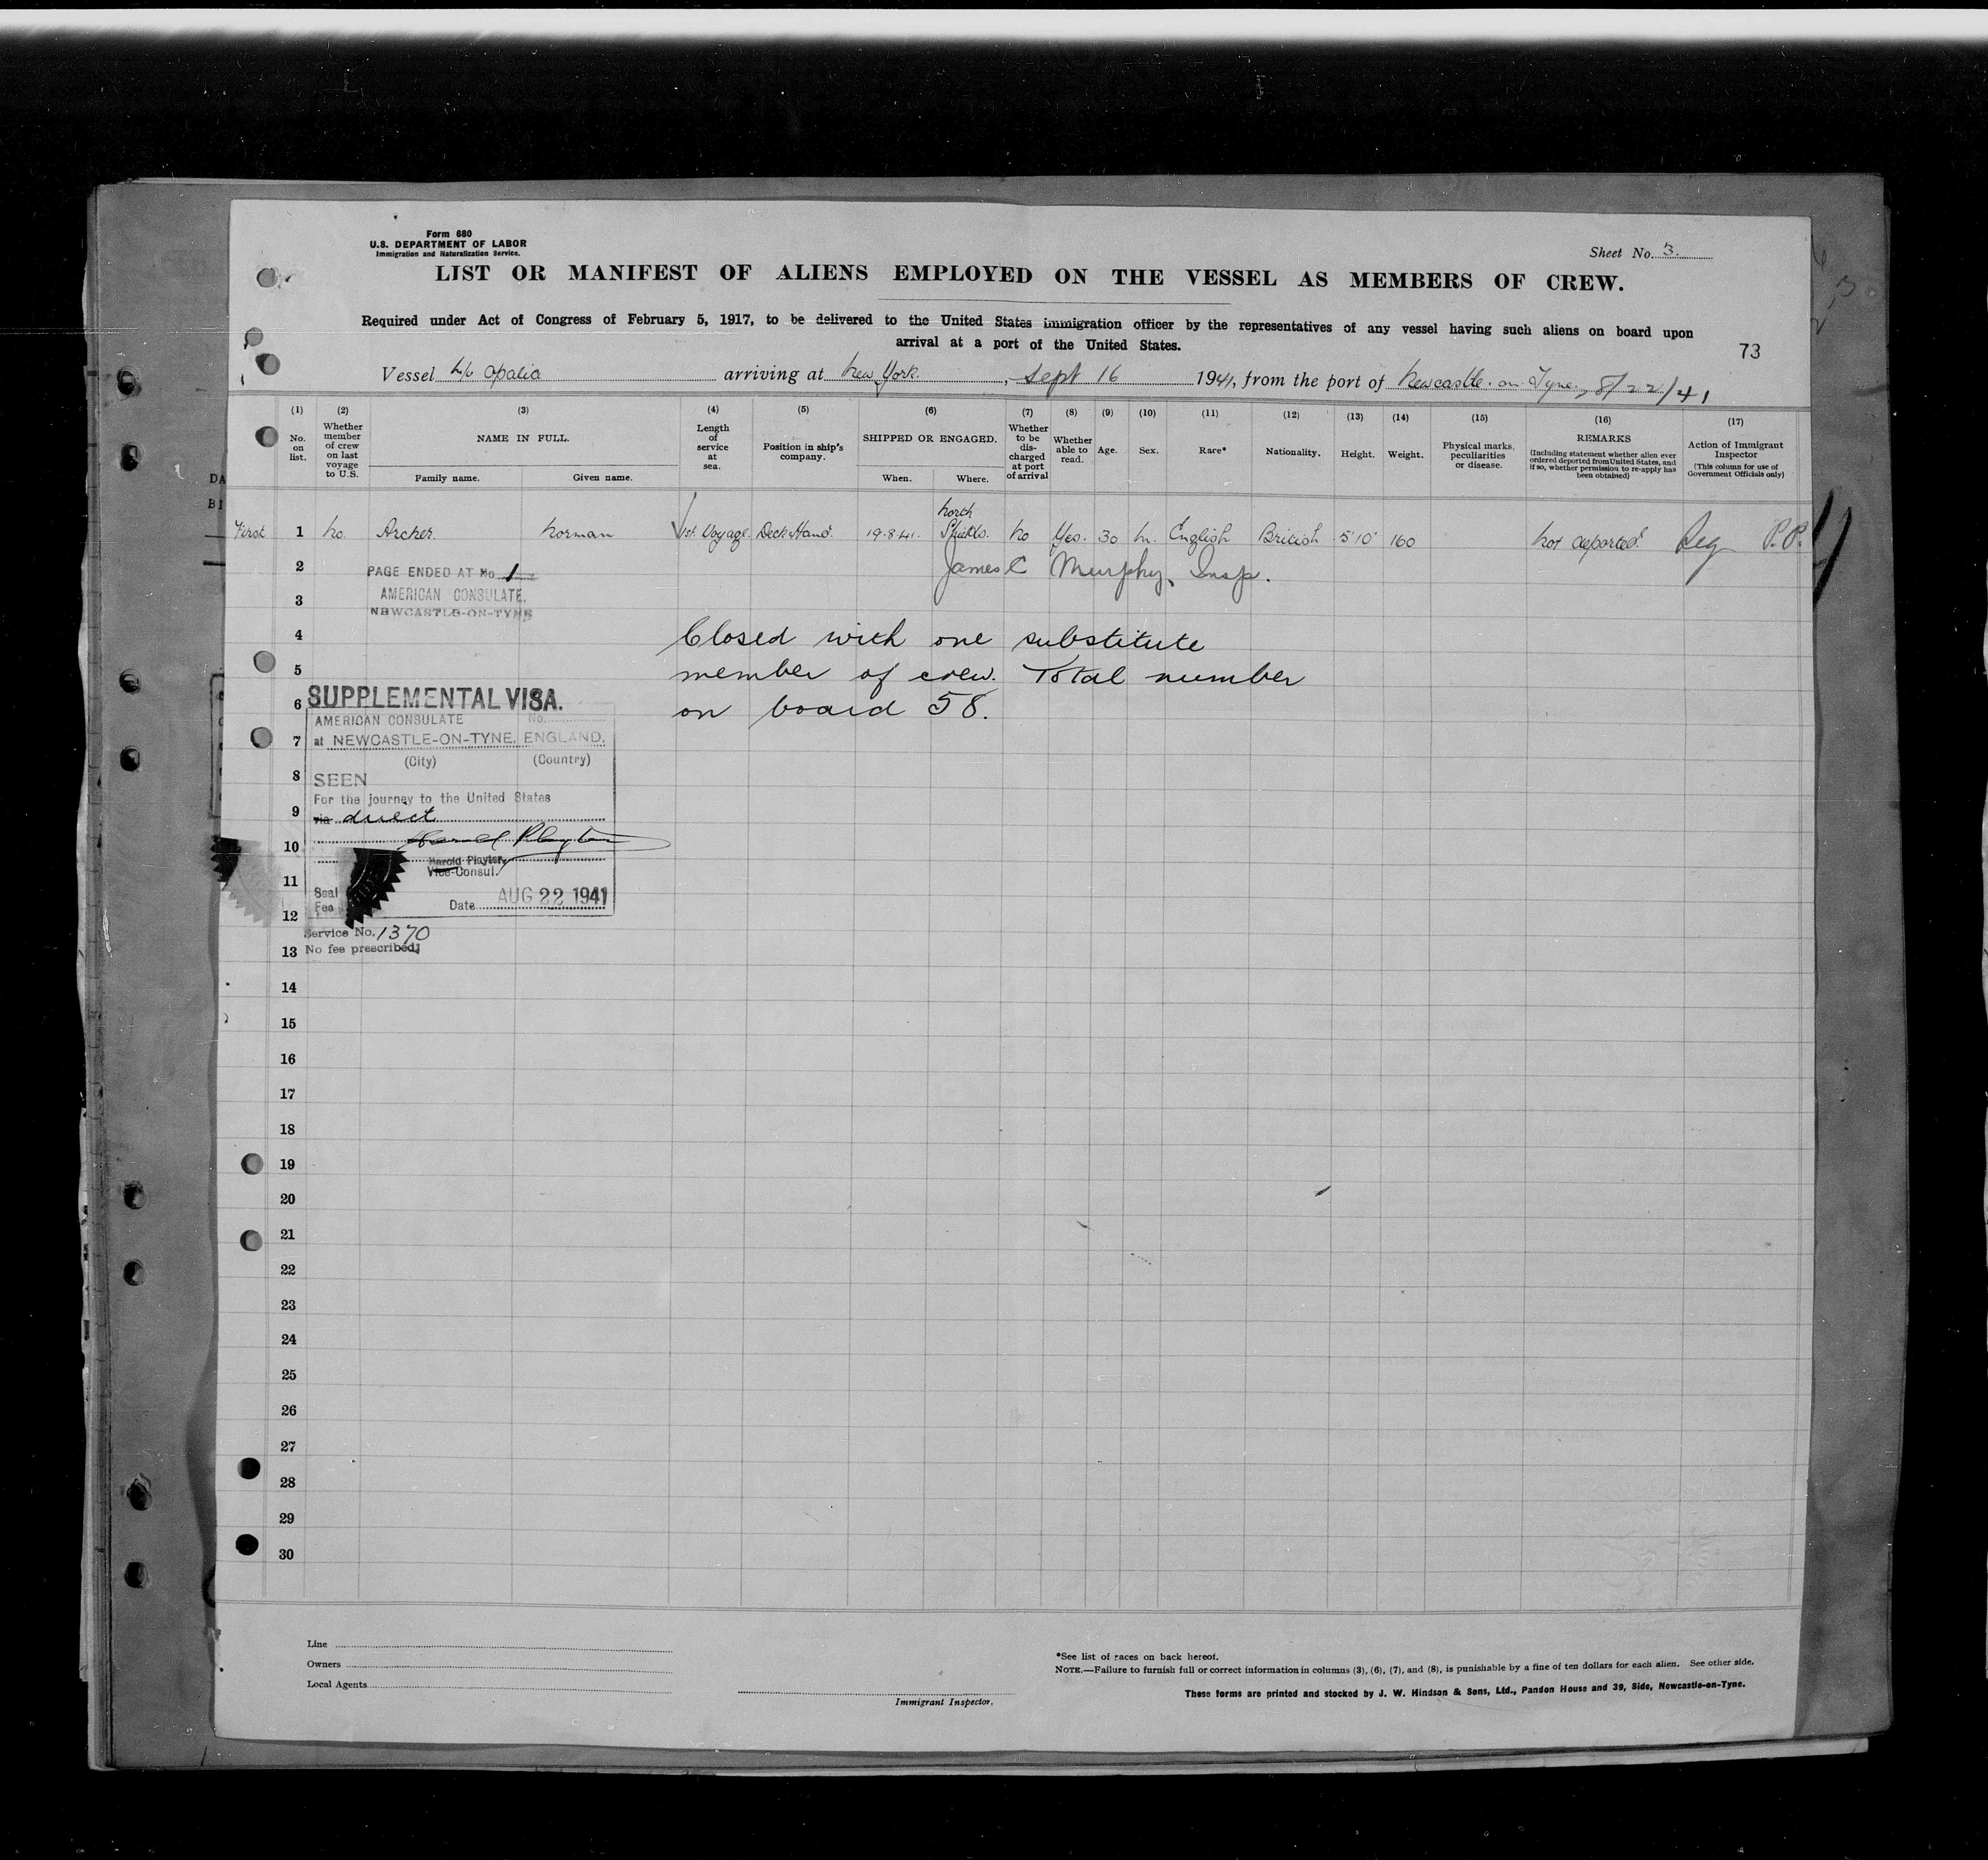 Form 680
U.S. DEPARTMENT OF LABOR
Immigration and Naturalization Service.
Sheet No. 3.
LIST OR MANIFEST OF ALIENS EMPLOYED ON THE VESSEL AS MEMBERS OF CREW.
Required under Act of Congress of February 5, 1917, to be delivered to the United States immigration officer by the representatives of any vessel having such aliens on board upon
arrival at a port of the United States.
73
Vessel M/V Opalia arriving at New York. , Sept 16 1941, from the port of Newcastle-on-Tyne, 8/22/41
(1) (2) (3) (4) (5) (6) (7) (8) (9) (10) (11) (12) (13) (14) (15) (16) (17)
No. on list.
Whether member of crew on last voyage to U.S.
NAME IN FULL.
Family name. Given name.
Length of service at sea.
Position in ship's company.
SHIPPED OR ENGAGED.
When. Where.
Whether to be dis-charged at port of arrival
Whether able to read.
Age.
Sex.
Rare*
Nationality.
Height.
Weight.
Physical marks, peculiarities or disease.
REMARKS
(Including statement whether alien ever ordered deported from United States, and if so, whether permission to re-apply has been obtained)
Action of Immigrant Inspector
(This column for use of Government Officials only)
First 1 No. Archer. Norman 1st. Voyage. Deck Hand. 19.8.41. North Shields. No Yes. 30 M. English British 5'10" 160 Not deported. P.P.
2 James C Murphy, Insp.
PAGE ENDED AT No 1
AMERICAN CONSULATE.
NEWCASTLE-ON-TYNE
3
4 Closed with one substitute
5 member of crew. Total number
6 on board 58.
SUPPLEMENTAL VISA.
AMERICAN CONSULATE No.
7 at NEWCASTLE-ON-TYNE, ENGLAND.
(City) (Country)
8 SEEN
For the journey to the United States
9 via direct
10 Harold Playter
Harold Playter,
Vice-Consul.
11 Seal
Fee Date AUG 22 1941
12
Service No. 1370
13 No fee prescribed
14
15
16
17
18
19
20
21
22
23
24
25
26
27
28
29
30
Line
Owners
Local Agents
Immigrant Inspector.
*See list of races on back hereof.
NOTE.—Failure to furnish full or correct information in columns (3), (6), (7), and (8), is punishable by a fine of ten dollars for each alien. See other side.
These forms are printed and stocked by J. W. Hindson & Sons, Ltd., Pandon House and 39, Side, Newcastle-on-Tyne.